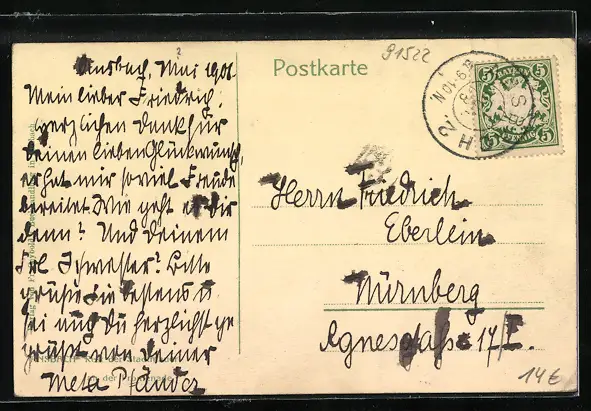 Ansbach, Mai 1901
Mein lieber Friedrich!
Herzlichen Dank für
Deinen lieben Glückwunsch,
er hat mir so viel Freude
bereitet. Wie geht es dir
denn? Und Deinem
Frl. Schwester? Bitte
grüße sie bestens u.
sei auch du herzlichst ge
grüßt von deiner
Meta Pfänder
Postkarte
91522
BAYERN
5 5
5 5
PFENNIG
Herrn Friedrich
Eberlein
Nürnberg
Agnesgasse 17/I.
14€